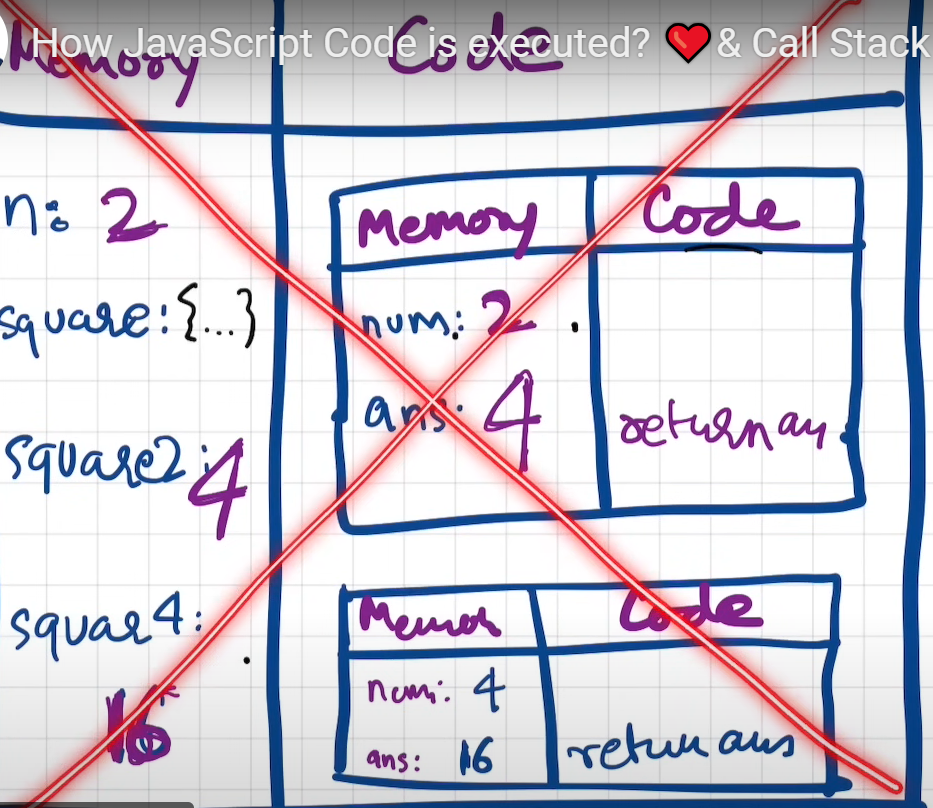 How JavaScript Code is executed? ❤️ & Call Stack
Memory Code
n: 2
square: {...}
square2: 4
squar4:
16
Memory Code
num: 2
ans: 4
return an
Memor Code
num: 4
ans: 16
return ans